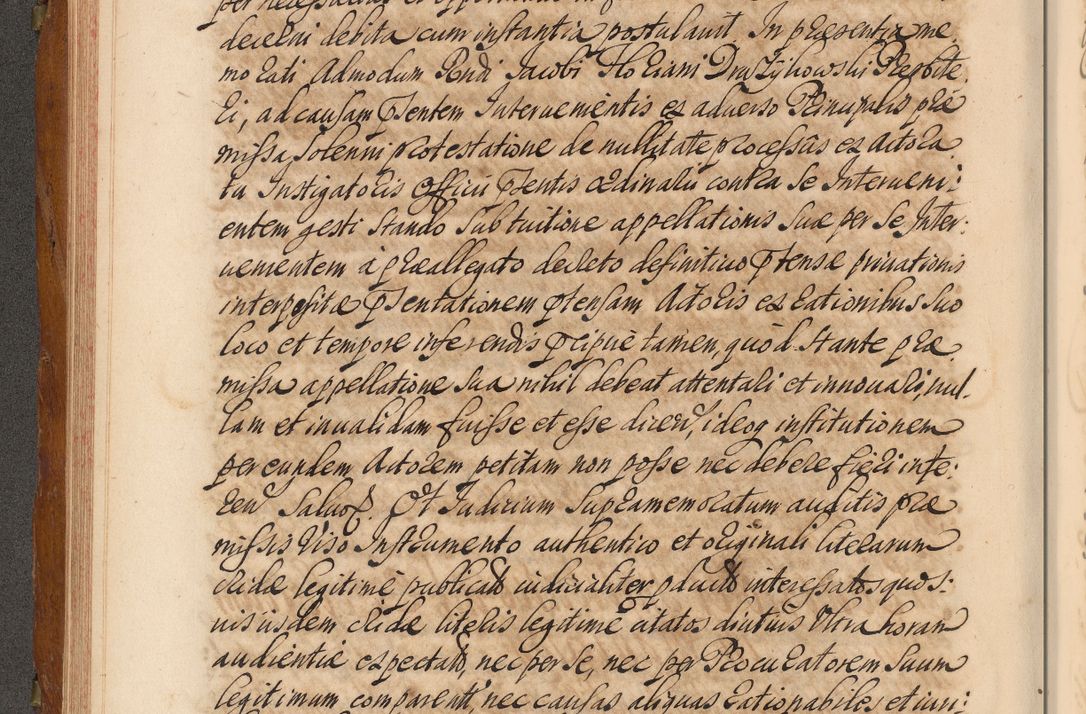 decerni debita cum instantia postulavit. In præsentia me
morati Admodum Rndi Jacobi Floriani Drużykowski Presbite
ri, ad causam psentem Intervenientis ex adverso Principalis præ
missa solenni protestatione de nullitate processus ex Actora
tu Instigatoris officii psentis ordinarii contra se Interveni:
entem gesti stando sub tuitione appellationis suæ per se Inter:
venientem à præallegato decreto definitivo ptensæ privationis
interpositæ psentationem ptensam Actoris ex rationibus suo
loco et tempore inferendis pcipuè tamen, quòd stante præ
missa appellatione sua nihil debeat attentari et innovari, nul-
lam et invalidam fuisse et esse dicen, ideoq institutionem
per eundem Actorem petitam non posse nec debere fieri infe:
ren Salvo. Et Judicium supramemoratum auditis præ
missis Viso Instrumento authentico et originali literarum
cridæ legitimè publicat iudicialiter pduct interessatos quos:
vis iisdem cridæ literis legitimè citatos diutius Ultra horam
audientiæ expectat, nec per se, nec per Procuratorem suum
legitimum comparent, nec causas aliquas rationabiles et iuri: